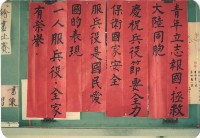 青年立志報國拯救
大陸同胞
慶祝兵役節要全力
保衛國家安全
服兵役是國民愛
國的表現
一人服兵役全家
有榮譽